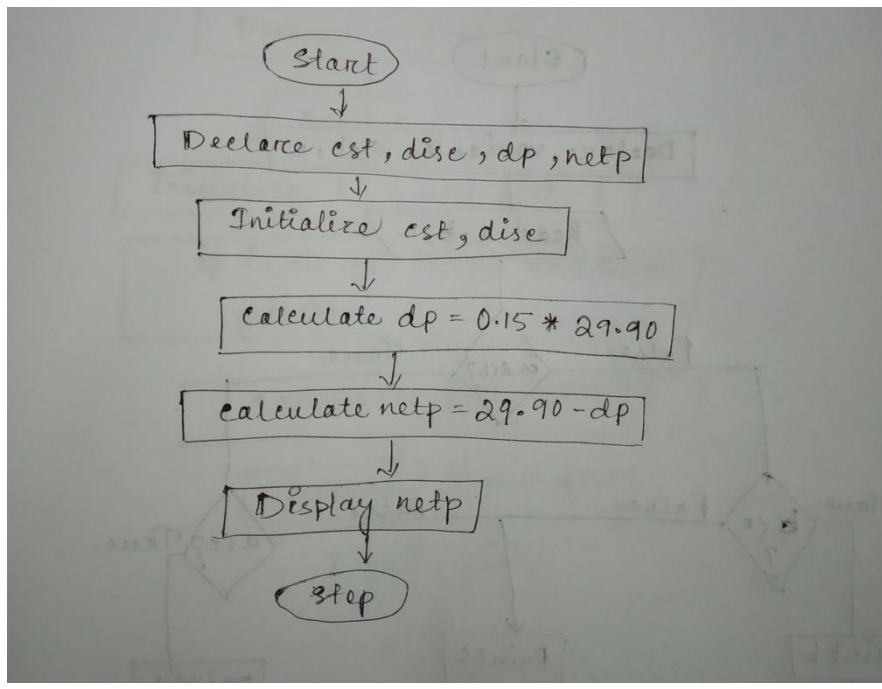 Start
Declare cst, disc, dp, netp
Initialize cst, disc
Calculate dp = 0.15 * 29.90
Calculate netp = 29.90 - dp
Display netp
Stop